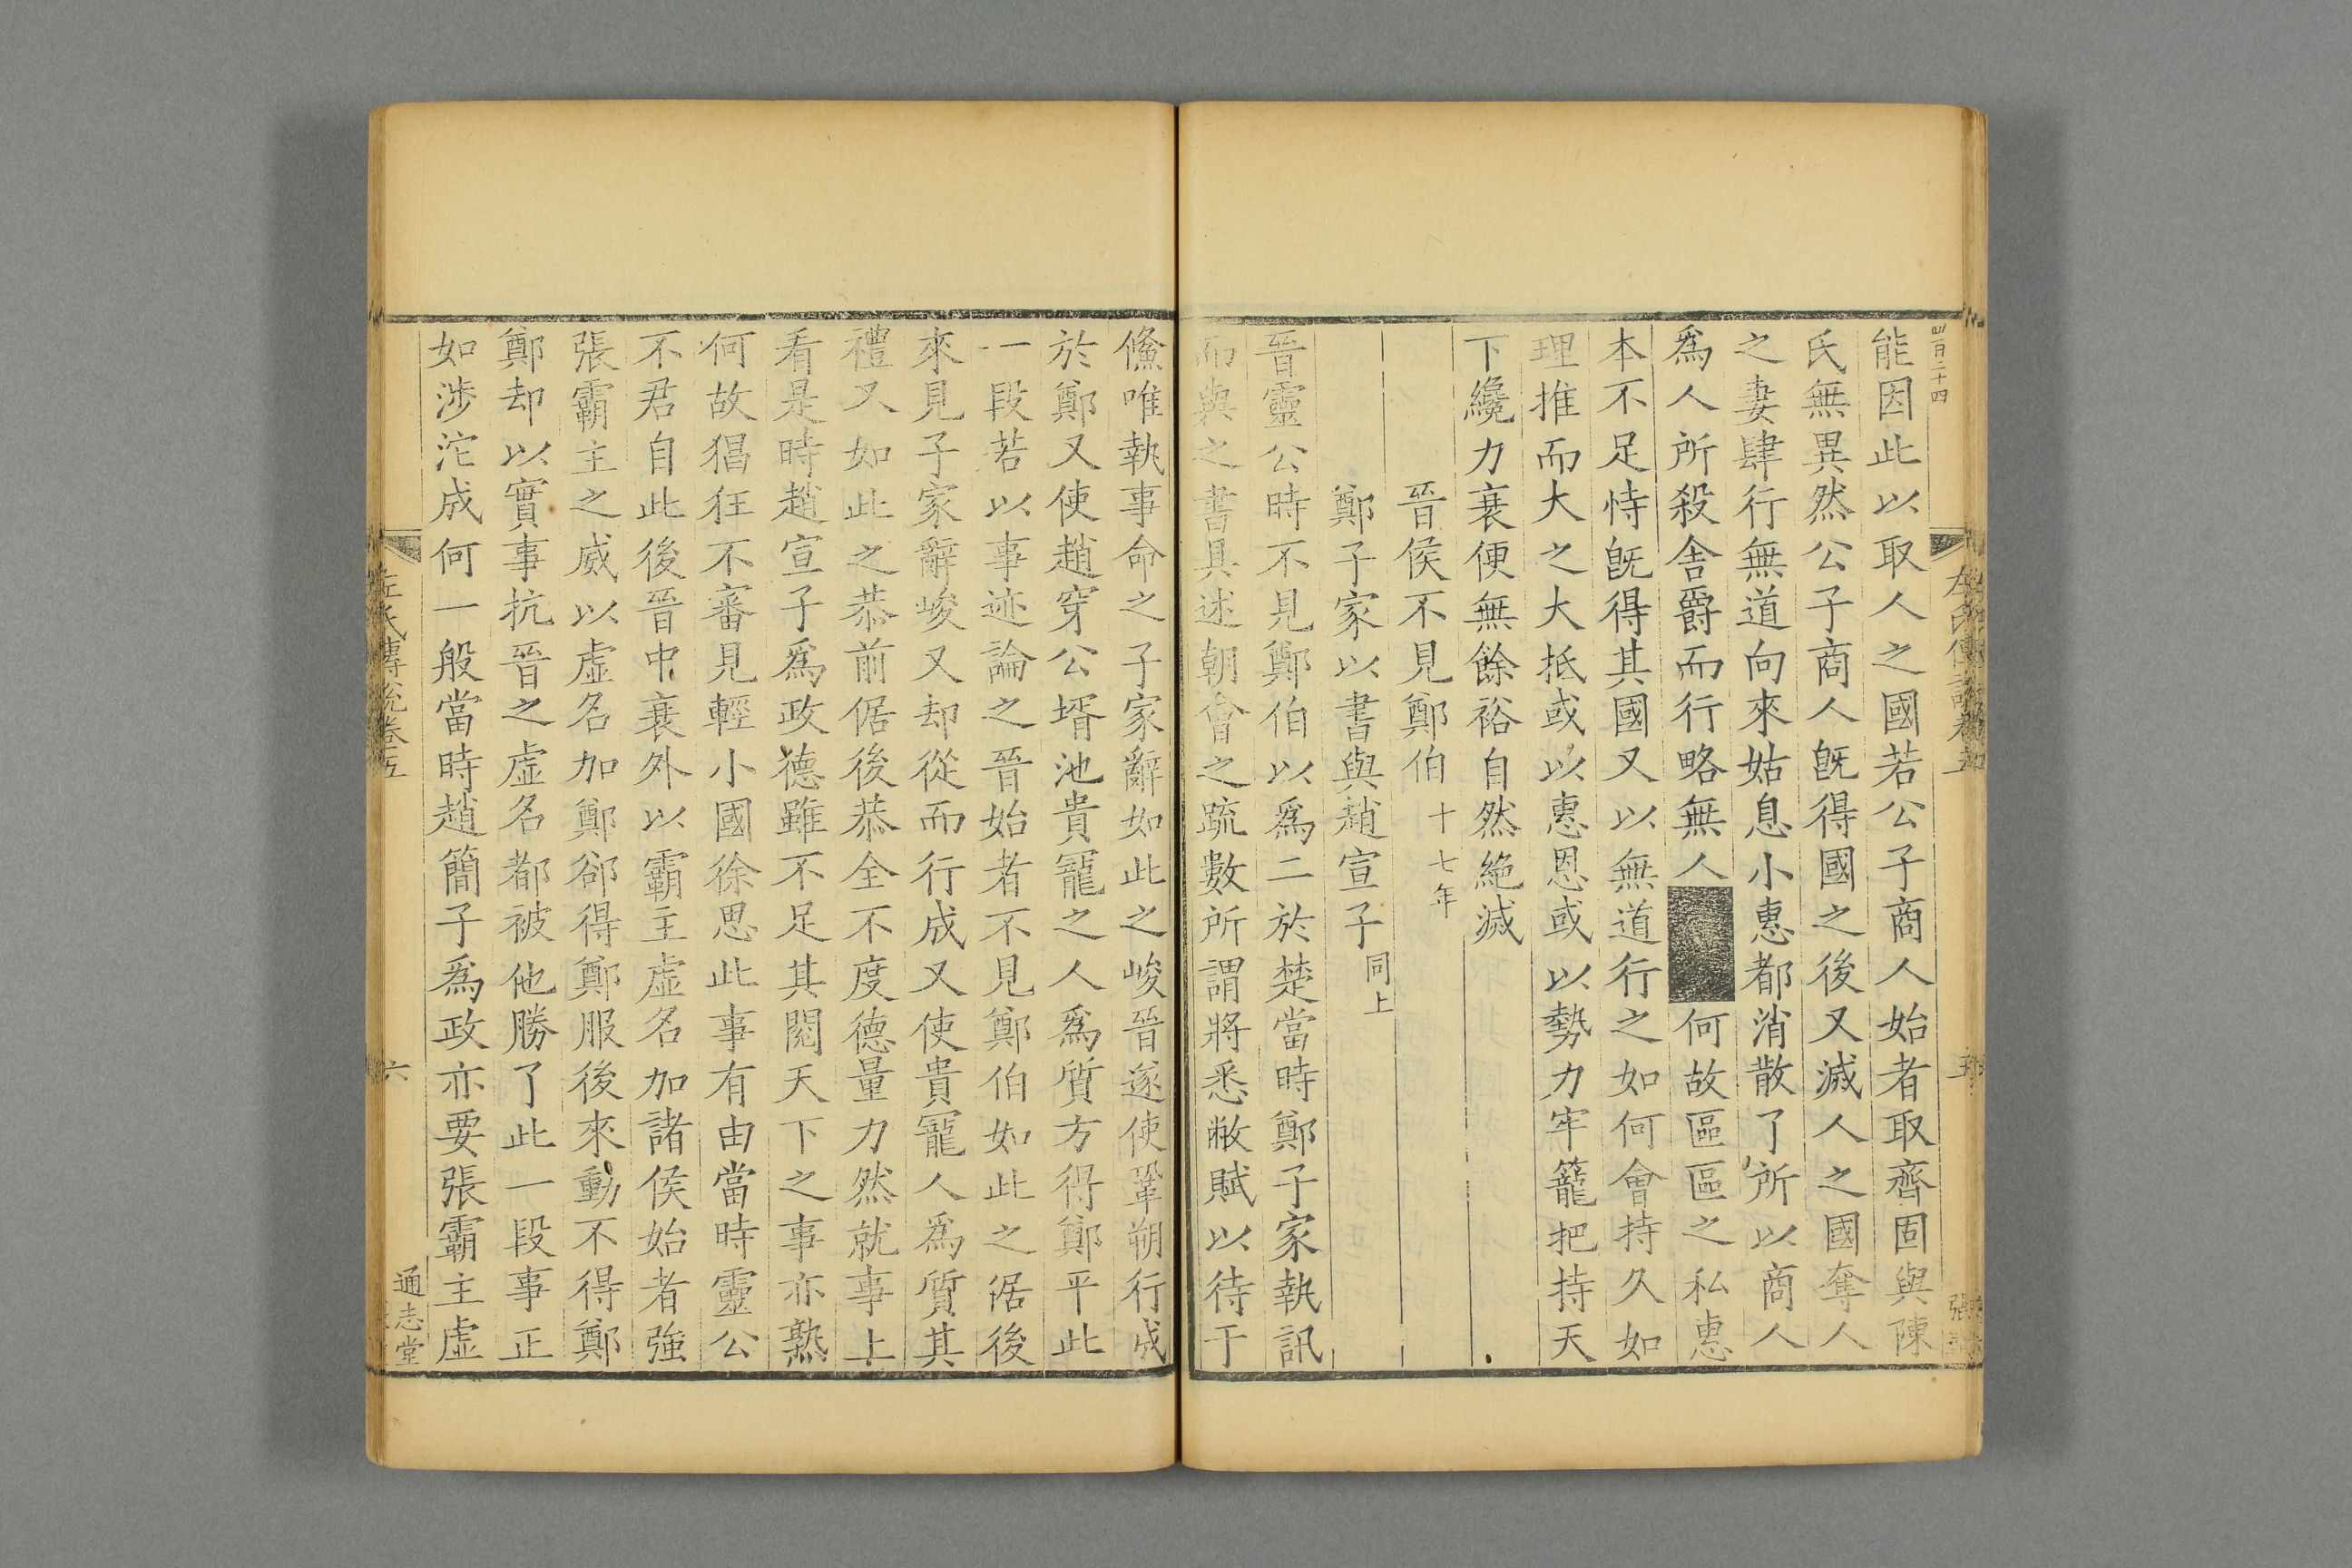 四百二十四
能因此以取人之國若公子商人始者取齊固與陳
氏無異然公子商人旣得國之後又滅人之國奪人
之妻肆行無道向來姑息小惠都消散了所以商人
爲人所殺舍爵而行略無人何故區區之私惠
本不足恃旣得其國又以無道行之如何會持久如
理推而大之大抵或以惠恩或以勢力牢籠把持天
下纔力衰便無餘裕自然絶滅
晉侯不見鄭伯十七年
鄭子家以書與趙宣子同上
晉靈公時不見鄭伯以爲二於楚當時鄭子家執訊
而與之書具述朝會之疏數所謂將悉敝賦以待于
鯈唯執事命之子家辭如此之峻晉遂使鞏朔行成
於鄭又使趙穿公壻池貴寵之人爲質方得鄭平此
一段若以事迹論之晉始者不見鄭伯如此之倨後
來見子家辭峻又却從而行成又使貴寵人爲質其
禮又如此之恭前倨後恭全不度德量力然就事上
看是時趙宣子爲政德雖不足其閱天下之事亦熟
何故猖狂不審見輕小國徐思此事有由當時靈公
不君自此後晉中衰外以霸主虛名加諸侯始者強
張霸主之威以虛名加鄭卻得鄭服後來動不得鄭
鄭却以實事抗晉之虛名都被他勝了此一段事正
如涉沱成何一般當時趙簡子爲政亦要張霸主虛
左氏傳說卷五
六
通志堂